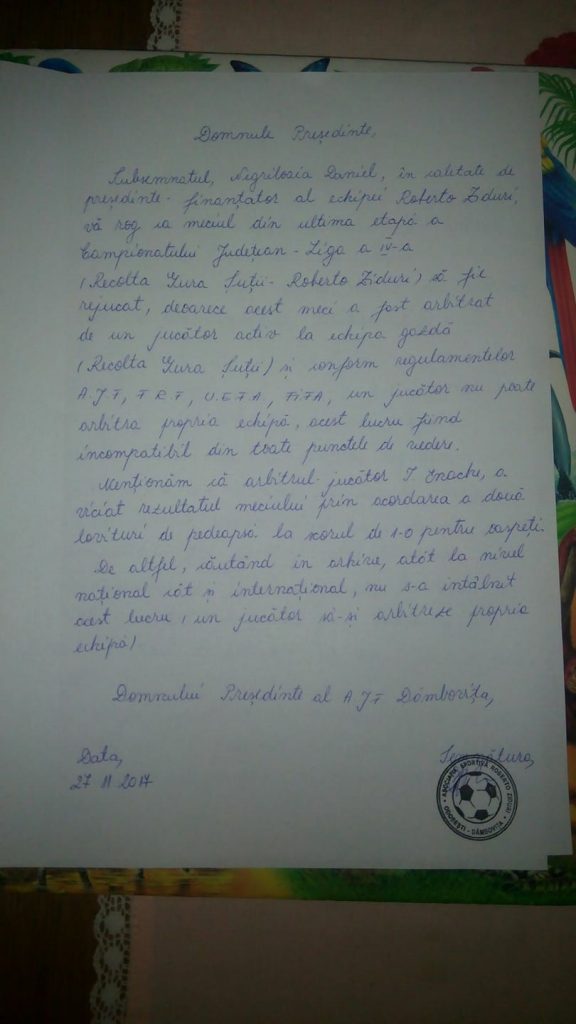 Domnule Președinte,
Subsemnatul, Negriloaia Daniel, în calitate de
președinte-finanțator al echipei Roberto Ziduri,
vă rog ca meciul din ultima etapă a
Campionatului Județean - Liga a IV-a
(Recolta Gura Șuții - Roberto Ziduri) să fie
rejucat, deoarece acest meci a fost arbitrat
de un jucător activ la echipa gazdă
(Recolta Gura Șuții) și conform regulamentelor
A.J.F, F.R.F, U.E.F.A, FIFA, un jucător nu poate
arbitra propria echipă, acest lucru fiind
incompatibil din toate punctele de vedere.
Menționăm că arbitrul-jucător I. Enache, a
viciat rezultatul meciului prin acordarea a două
lovituri de pedeapsă la scorul de 1-0 pentru oaspeți.
De altfel, căutând în arhive, atât la nivel
național cât și internațional, nu s-a întâlnit
acest lucru (un jucător să-și arbitreze propria
echipă)
Domnului Președinte al A.J.F Dâmbovița,
Data, Semnătura,
27 11 2017
ASOCIAȚIA SPORTIVĂ ROBERTO ZIDURI
ODOBEȘTI - DÂMBOVIȚA